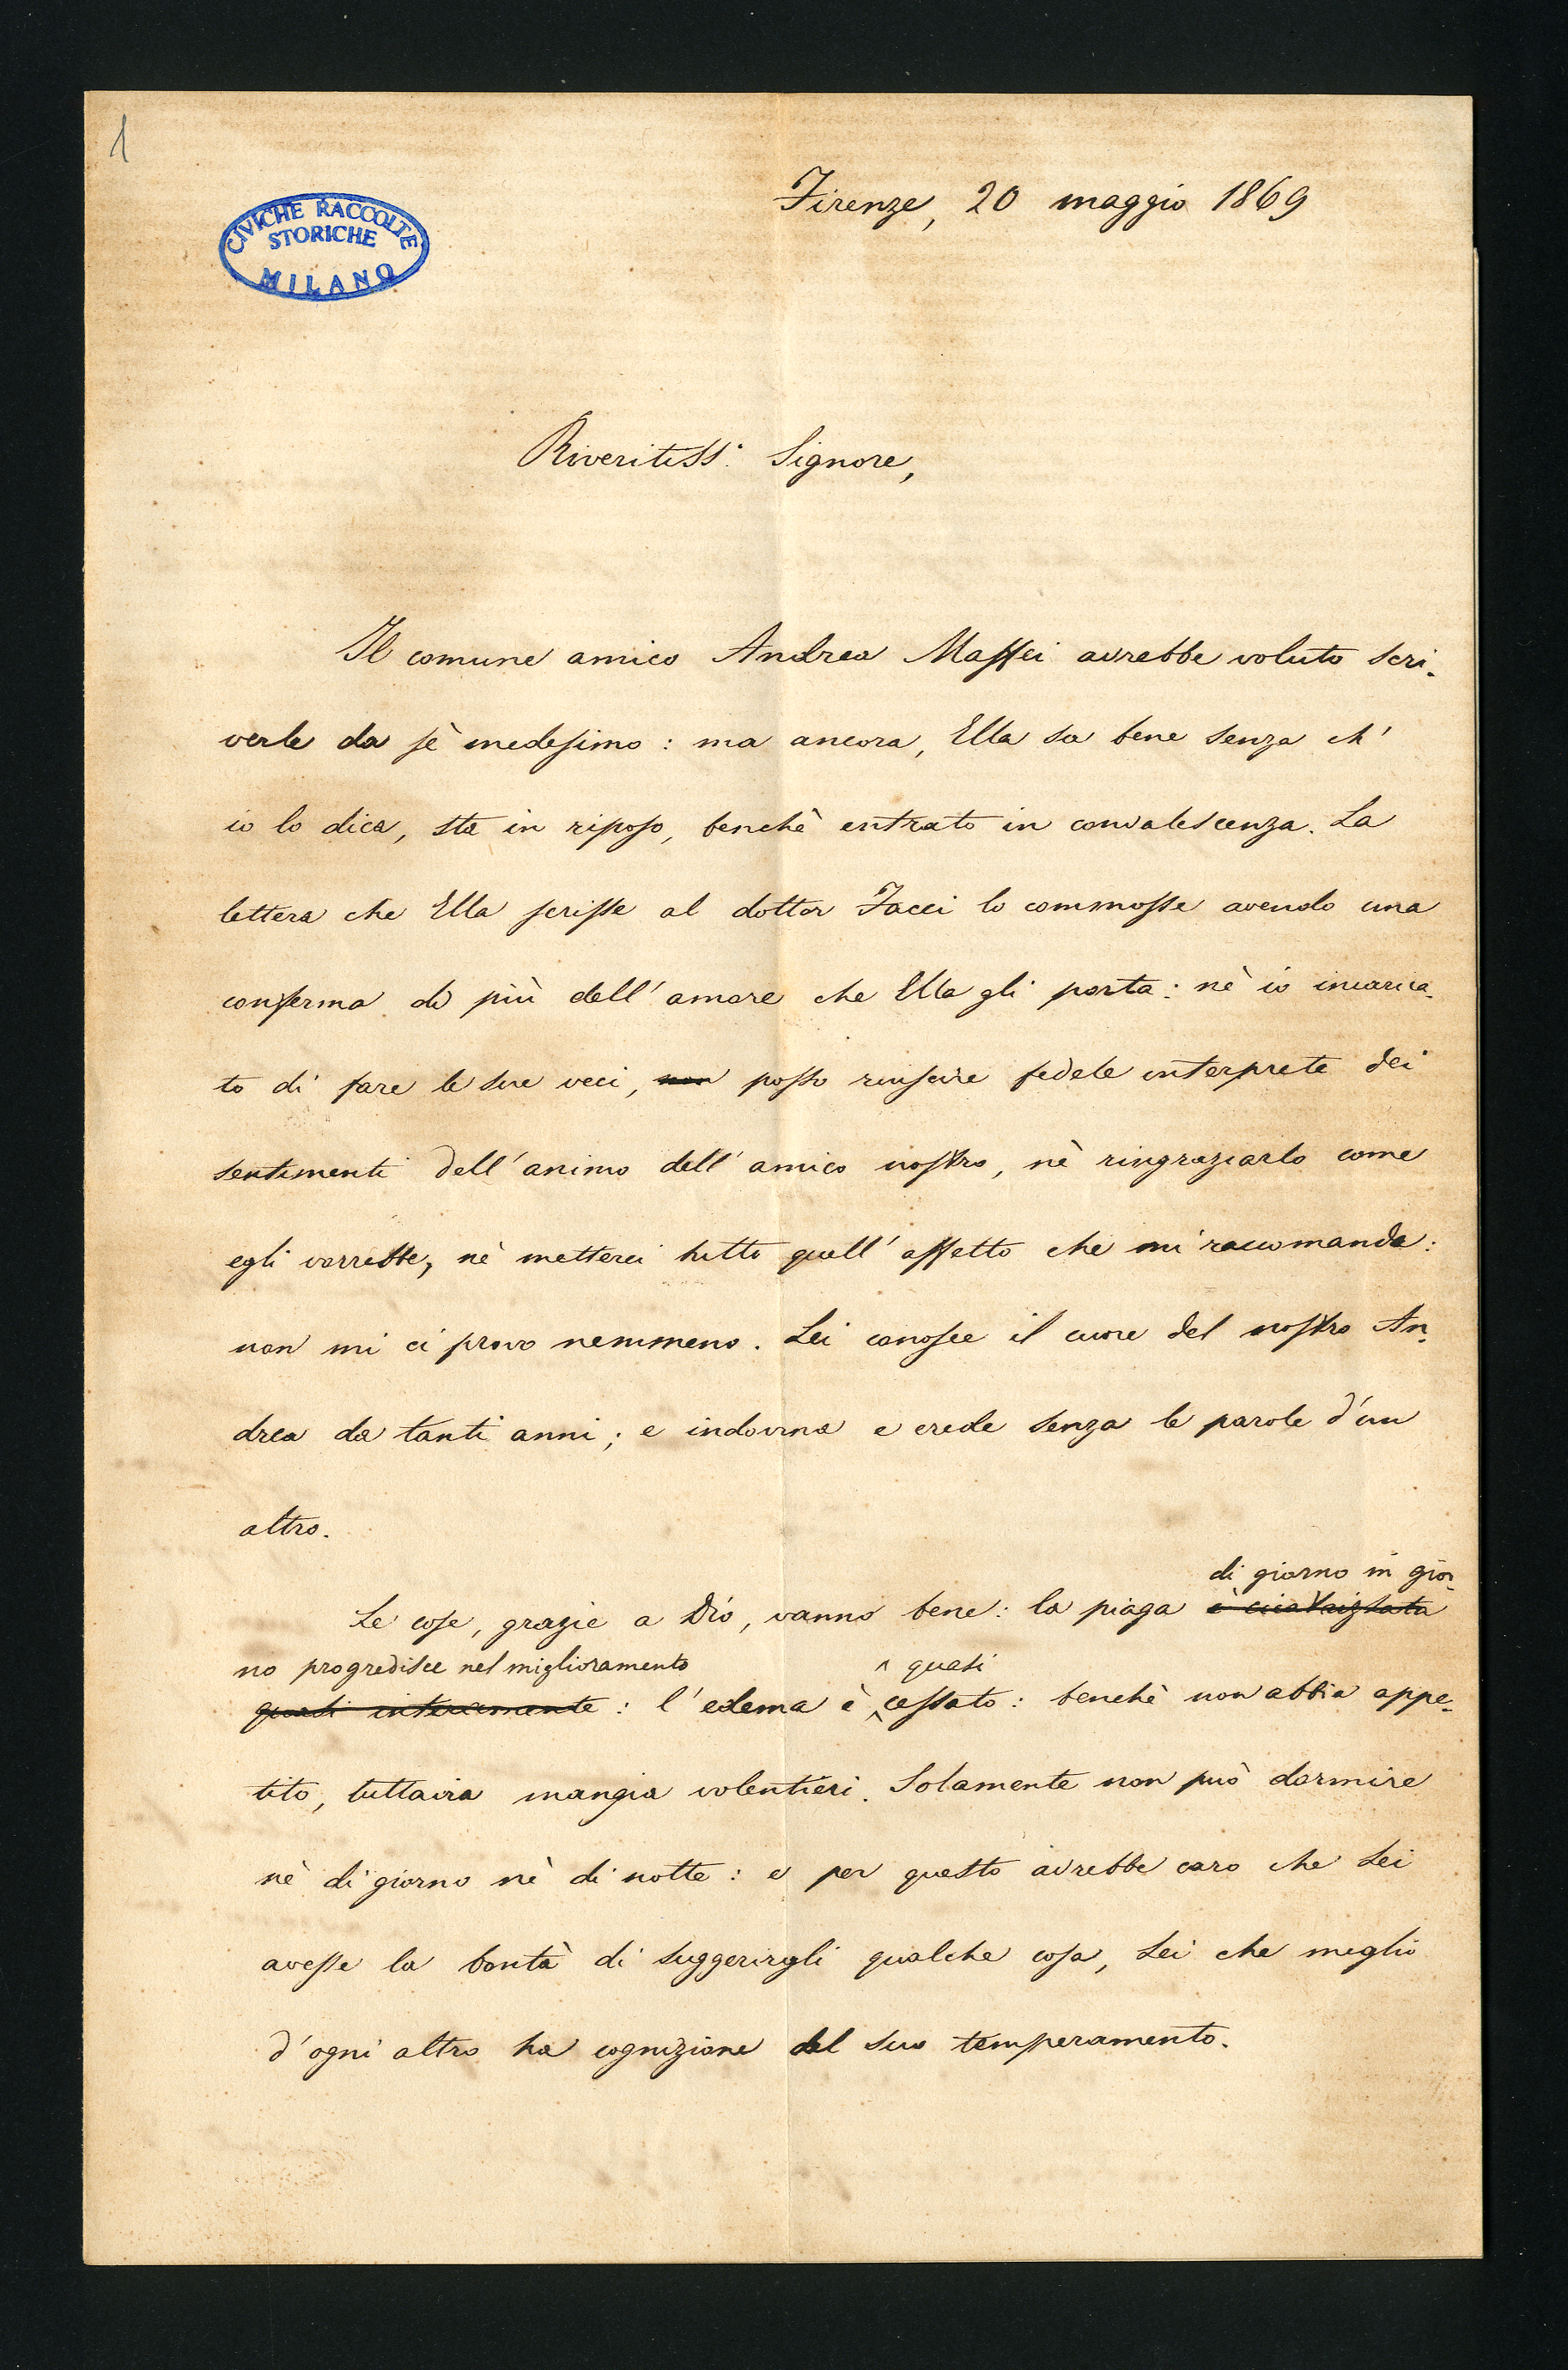 1
CIVICHE RACCOLTE
STORICHE
MILANO
Firenze, 20 maggio 1869
Riveritiss.º Signore,
Il comune amico Andrea Maffei avrebbe voluto scri-
verle da sè medesimo: ma ancora, Ella sa bene senza ch'
io lo dica, sta in riposo, benchè entrato in convalescenza. La
lettera che Ella scrisse al dottor Facci lo commosse avendo una
conferma di più dell'amore che Ella gli porta: nè io incarica-
to di fare le sue veci, non posso riuscire fedele interprete dei
sentimenti dell'animo dell'amico nostro, nè ringraziarlo come
egli vorrebbe, nè metterci tutto quell'affetto che mi raccomanda:
non mi ci provo nemmeno. Lei conosce il cuore del nostro An-
drea da tanti anni; e indovina e crede senza le parole d'un
altro.
di giorno in gior-
Le cose, grazie a Dio, vanno bene: la piaga è cicatrizzata
no progredisce nel miglioramento ^ quasi
quasi interamente: l'edema è ^ cessato: benchè non abbia appe-
tito, tuttavia mangia volentieri. Solamente non può dormire
nè di giorno nè di notte: e per questo avrebbe caro che Lei
avesse la bontà di suggerirgli qualche cosa, Lei che meglio
d'ogni altro ha cognizione del suo temperamento.